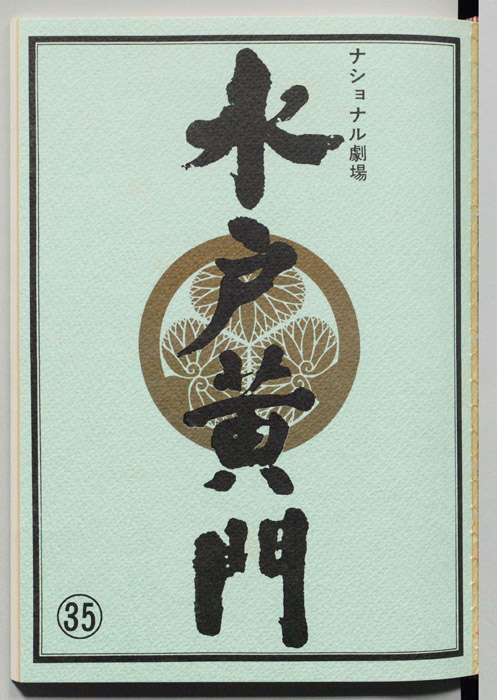 ナショナル劇場
水戸黄門
35